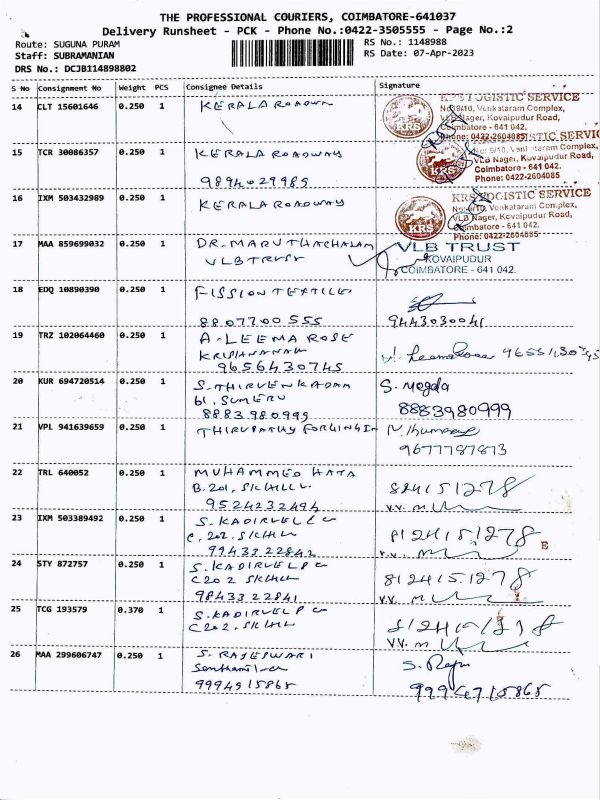 THE PROFESSIONAL COURIERS, COIMBATORE-641037
Delivery Runsheet - PCK - Phone No.:0422-3505555 - Page No.:2
Route: SUGUNA PURAM
RS No.: 1148988
Staff: SUBRAMANIAN
RS Date: 07-Apr-2023
DRS No.: DCJB114898802
S No Consignment No Weight PC Consignee Details Signature
14 CLT 15601646 0.250 1 KERALA ROADWAY
KRS LOGISTIC SERVICE
No: 9/10, Venkataram Complex,
VLB Nager, Kovaipudur Road,
Coimbatore - 641 042.
Phone: 0422-2604085
KRS
15 TCR 30086357 0.250 1 KERALA ROADWAY
9894029985
LOGISTIC SERVIC
No: 9/10, Venkataram Complex,
VLB Nager, Kovaipudur Road,
Coimbatore - 641 042.
Phone: 0422-2604085
KRS
16 IXM 503432989 0.250 1 KERALA ROADWAY
KRS LOGISTIC SERVICE
No: 9/10, Venkataram Complex,
VLB Nager, Kovaipudur Road,
Coimbatore - 641 042.
Phone: 0422-2604085
KRS
17 MAA 859699032 0.250 1 DR. MARUTHACHALAM
VLB TRUST
VLB TRUST
KOVAIPUDUR
COIMBATORE - 641 042.
18 EDQ 10890390 0.250 1 FISSION TEXTILES
8807700555
9443030041
19 TRZ 102064460 0.250 1 A-LEEMA ROSE
9656430745
20 KUR 694720514 0.250 1 S. THIRUVENKADAM
61, SUMERU
8883980999
S. Megda
8883980999
21 VPL 941639659 0.250 1 THIRUPATHY FORGINGIN
9677787873
22 TRL 640052 0.250 1 MUHAMMED HATA
B.201,
9524232494
8124151278
V.V. M
23 IXM 503389492 0.250 1 S. KADIRVEL
C.202.
9943322842
8124151278
V.V. M
24 STY 872757 0.250 1 S. KADIRVEL P C
C202
9843322841
8124151278
VV. M
25 TCG 193579 0.370 1 S. KADIRVEL P C
C202.
VV. M
26 MAA 299606747 0.250 1 S. RAJESWARI
9994915868
S. Raju